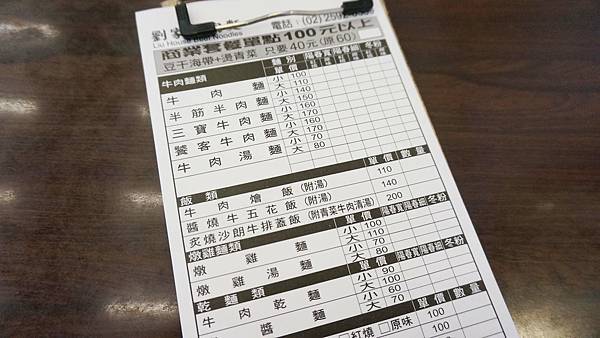 電話:(02)259
Liu House Beef Noodles
商業套餐單點100元以上
豆干海帶+燙青菜 只要40元(原60)
牛肉麵類 種別 單價 陽春寬 陽春細 冬粉
牛肉麵 小 100
大 110
半筋半肉麵 小 140
大 150
三寶牛肉麵 小 160
大 170
饕客牛肉麵 小 160
大 170
牛肉湯麵 小 70
大 80
飯類 單價 數量
牛肉燴飯(附湯) 110
醬燒牛五花飯(附湯) 140
炙燒沙朗牛排蓋飯(附青菜牛肉清湯) 200
燉雞麵類 單價 陽春寬 陽春細 冬粉
燉雞麵 小 100
大 110
燉雞湯麵 小 70
大 80
乾麵類 單價 陽春寬 陽春細 冬粉
牛肉乾麵 小 90
大 100
醬麵 小 60
大 70
單價 數量
□紅燒 □原味 100
100